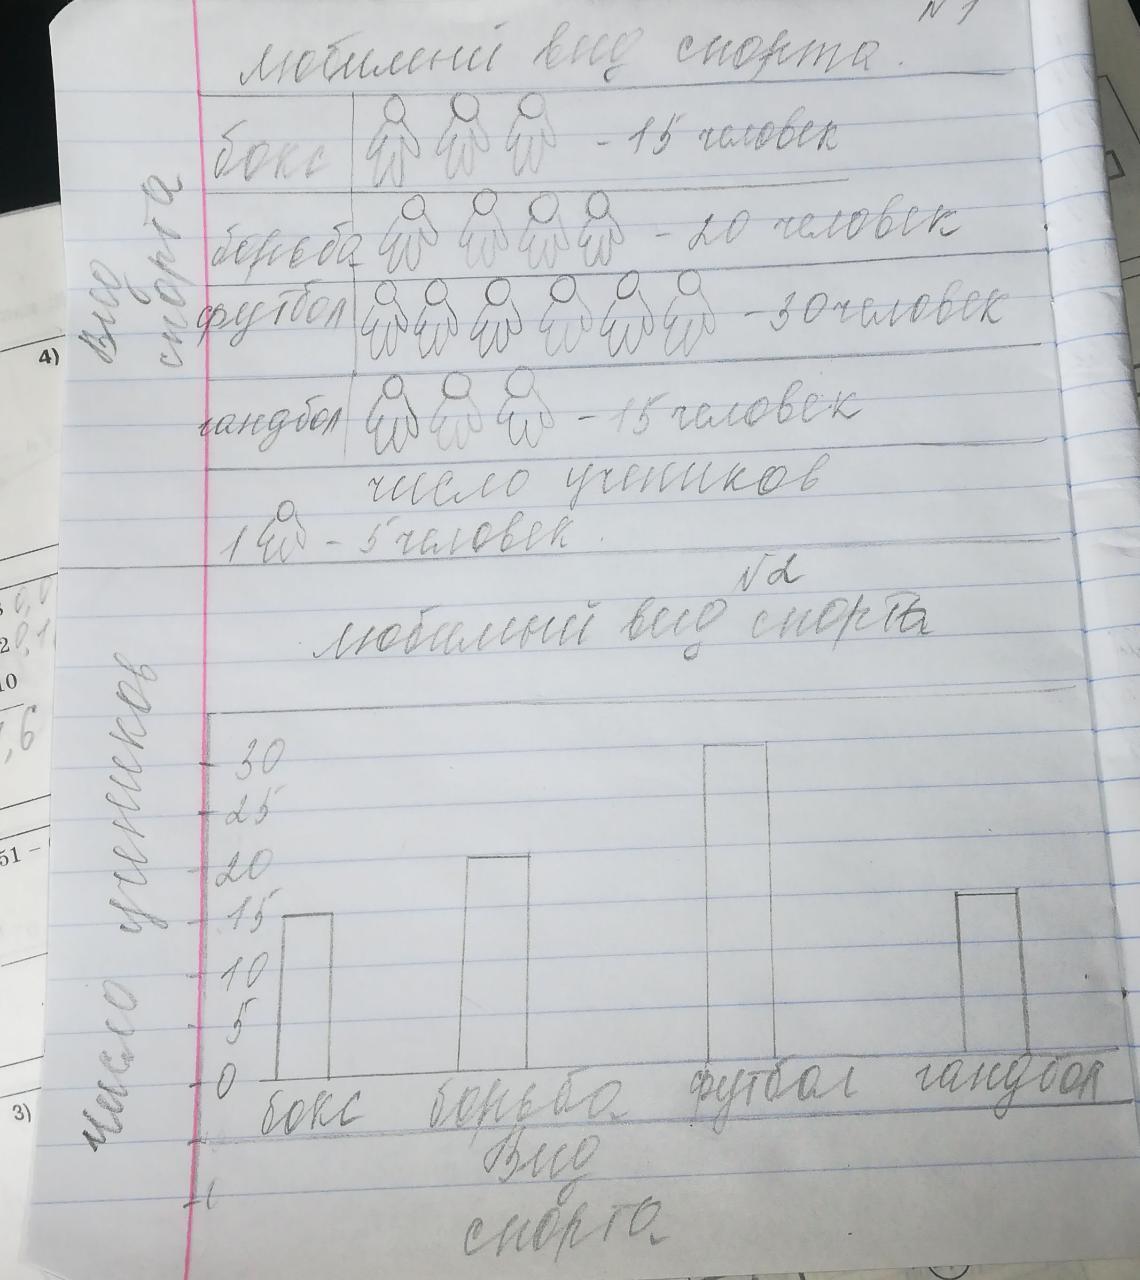 N 1
любимый вид спорта.
Вид спорта
бокс - 15 человек
борьба - 20 человек
футбол - 30 человек
гандбол - 15 человек
число учеников
1 - 5 человек.
N 2
любимый вид спорта
число учеников
30
25
20
15
10
5
0
бокс борьба футбол гандбол
Вид
спорта
4)
10
,6
51 -
3)